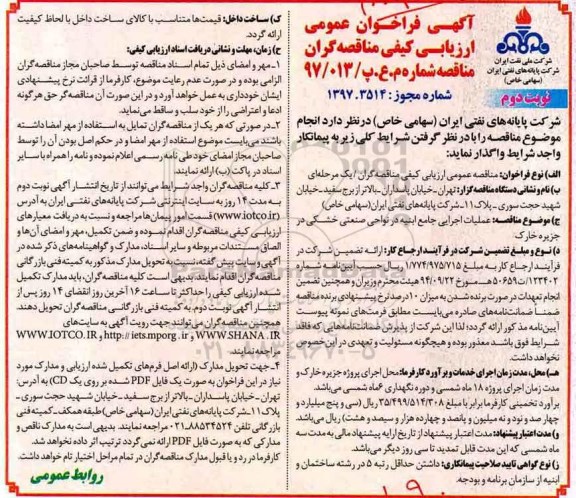 آگهی فراخوان عمومی
ارزیابی کیفی مناقصه‌گران
مناقصه شماره م.ع.پ/۹۷/۰۱۳
شماره مجوز: ۱۳۹۷.۳۵۱۴
شرکت ملی نفت ایران
شرکت پایانه‌های نفتی ایران
(سهامی خاص)
نوبت دوم
شرکت پایانه‌های نفتی ایران (سهامی خاص) درنظر دارد انجام
موضوع مناقصه را با در نظر گرفتن شرایط کلی زیر به پیمانکار
واجد شرایط واگذار نماید:
الف) نوع فراخوان: مناقصه عمومی ارزیابی کیفی مناقصه‌گران / یک مرحله‌ای
ب) نام و نشانی دستگاه مناقصه گزار: تهران-خیابان پاسداران-بالاتر از برج سفید-خیابان
شهید حجت سوری-پلاک ۱۱-شرکت پایانه‌های نفتی ایران (سهامی خاص)
ج) موضوع مناقصه: عملیات اجرایی جامع ابنیه در نواحی صنعتی خشکی در
جزیره خارک
د) نوع و مبلغ تضمین شرکت در فرآیند ارجاع کار: ارائه تضمین شرکت در
فرآیند ارجاع کار به مبلغ ۱/۷۷۴/۹۷۵/۷۱۵ ریال مطابق آیین‌نامه شماره
۱۲۳۴۰۲/ت۵۰۶۵۹هـ مورخ ۹۴/۰۹/۲۲ هیئت محترم وزیران و همچنین تضمین
انجام تعهدات در صورت برنده شدن به میزان ۱۰ درصد نرخ پیشنهادی برنده مناقصه
ضمناً ضمانت‌نامه‌های صادره می‌بایست مطابق فرمت‌های نمونه پیوست
آیین‌نامه مذکور ارائه گردد؛ لذا این شرکت از پذیرش ضمانت‌نامه‌هایی که فاقد
شرایط فوق باشد معذور بوده و هیچگونه مسئولیت و تعهدی در این خصوص
نخواهد داشت.
هـ) محل، مدت زمان اجرای خدمات و برآورد کارفرما: محل اجرای پروژه جزیره خارک و
مدت زمان اجرای پروژه ۱۸ ماه شمسی و دوره نگهداری ۶ ماه شمسی می‌باشد.
برآورد تخمینی کارفرما برابر با مبلغ ۳۵/۴۹۹/۵۱۴/۳۰۸ ریال (سی و پنج میلیارد و
چهارصد و نود و نه میلیون و پانصد و چهارده هزار و سیصد و هشت) ریال می‌باشد.
و) مدت اعتبار پیشنهاد: مدت اعتبار پیشنهاد از تاریخ ارایه پیشنهاد مالی به مدت سه
ماه شمسی که این مدت قابل تمدید تا سی روز دیگر می‌باشد.
ز) نوع گواهی تایید صلاحیت پیمانکاری: داشتن حداقل رتبه ۵ در رشته ساختمان و
ابنیه از سازمان برنامه و بودجه.
ک) ساخت داخل: قیمت‌ها متناسب با کالای ساخت داخل با لحاظ کیفیت
ارائه گردد.
ح) زمان، مهلت و نشانی دریافت اسناد ارزیابی کیفی:
۱-مهر و امضای ذیل تمام اسناد مناقصه توسط صاحبان مجاز مناقصه‌گران
الزامی بوده و در صورت عدم رعایت موضوع، کارفرما از قرائت نرخ پیشنهادی
ایشان خودداری به عمل خواهد آورد و در این صورت آن مناقصه‌گر حق هرگونه
ادعا و اعتراضی را از خود سلب و ساقط می‌نماید.
۲-در صورتی که هر یک از مناقصه‌گران تمایل به استفاده از مهر امضا داشته
باشند می‌بایست موضوع استفاده از مهر امضا و در حکم اصل بودن آن را توسط
صاحبان مجاز امضای خود طی نامه رسمی اعلام نموده و نامه را همراه با سایر
اسناد در پاکت (ب) ارائه نمایند.
۳-کلیه مناقصه‌گران واجد شرایط می‌توانند از تاریخ انتشار آگهی نوبت دوم
به مدت ۱۴ روز به سایت اینترنتی شرکت پایانه‌های نفتی ایران به آدرس
(www.iotco.ir) قسمت امور پیمان‌ها مراجعه و نسبت به دریافت معیارهای
ارزیابی کیفی مناقصه‌گران اقدام نموده و ضمن تکمیل، مهر و امضای آن‌ها و
الصاق مستندات مربوطه و سایر اسناد، مدارک و گواهینامه‌های ذکر شده در
آگهی و سایت پیش گفته، نسبت به تحویل مدارک مذکور به کمیته فنی بازرگانی
مناقصه‌گران اقدام نمایند. بدیهی است کلیه مناقصه‌گران، باید مدارک تکمیل
شده ارزیابی کیفی را حداکثر تا ساعت ۱۶ آخرین روز انقضای ۱۴ روز پس از
انتشار آگهی نوبت دوم، به کمیته فنی بازرگانی مناقصه‌گران تحویل دهند.
همچنین مناقصه‌گران می‌توانند جهت رویت آگهی به سایت‌های
WWW.IOTCO.IR و http://iets.mporg.ir و WWW.SHANA.IR
مراجعه نمایند.
۴-جهت تحویل مدارک (ارائه اصل فرم‌های تکمیل شده ارزیابی و مدارک مورد
نیاز در این فراخوان به صورت یک فایل PDF شده بر روی یک CD) به آدرس
تهران-خیابان پاسداران-بالاتر از برج سفید-خیابان شهید حجت سوری-
پلاک ۱۱-شرکت پایانه‌های نفتی ایران (سهامی خاص) طبقه همکف-کمیته فنی
بازرگانی تلفن ۸۸۵۳۴۵۲۴-۰۲۱ مراجعه نمایند. بدیهی است به مدارک ناقص و
مدارکی که به صورت فایل PDF ارائه نمی‌گردد ترتیب اثر داده نخواهد شد.
کارفرما در رد و یا قبول مدارک مناقصه‌گران در تمام مراحل اختیار تام خواهد داشت.
روابط عمومی